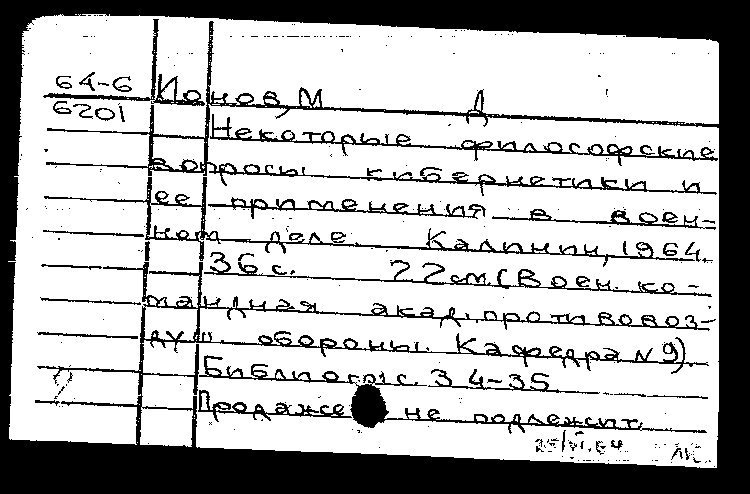 64-6 Ионов, М Д
6201
Некоторые философские
вопросы кибернетики и
ее применения в воен-
ном деле. Калинин, 1964.
36 с. 22 см. (Воен. ко-
мандная акад. противовоз-
душ. обороны. Кафедра N 9).
Библиогр: с. 34-35
Продаже не подлежит.
25/VI.64